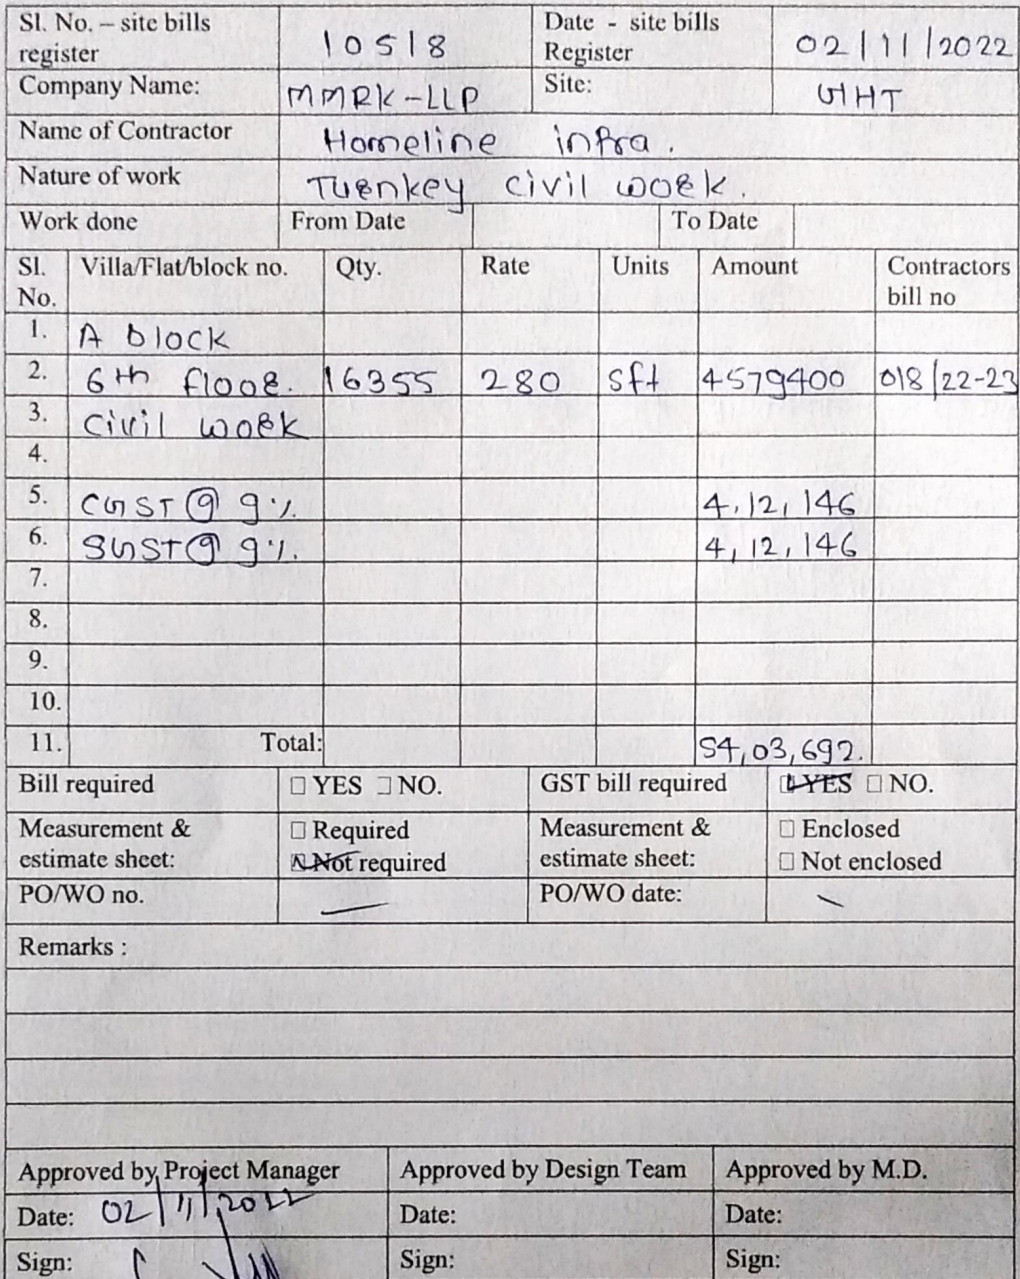 Sl. No. – site bills register 10518 Date - site bills Register 02/11/2022
Company Name: MMRK-LLP Site: GHT
Name of Contractor Homeline infra.
Nature of work Turnkey civil work.
Work done From Date To Date
Sl. No. Villa/Flat/block no. Qty. Rate Units Amount Contractors bill no
1. A block
2. 6th floor. 16355 280 sft 4579400 018/22-23
3. Civil work
4.
5. CGST @ 9% 4,12,146
6. SGST @ 9% 4,12,146
7.
8.
9.
10.
11. Total: 54,03,692.
Bill required □ YES □ NO. GST bill required ☑ YES □ NO.
Measurement & estimate sheet: □ Required ☑ Not required Measurement & estimate sheet: □ Enclosed □ Not enclosed
PO/WO no. — PO/WO date: —
Remarks :
Approved by Project Manager Approved by Design Team Approved by M.D.
Date: 02/11/2022 Date: Date:
Sign: Sign: Sign: